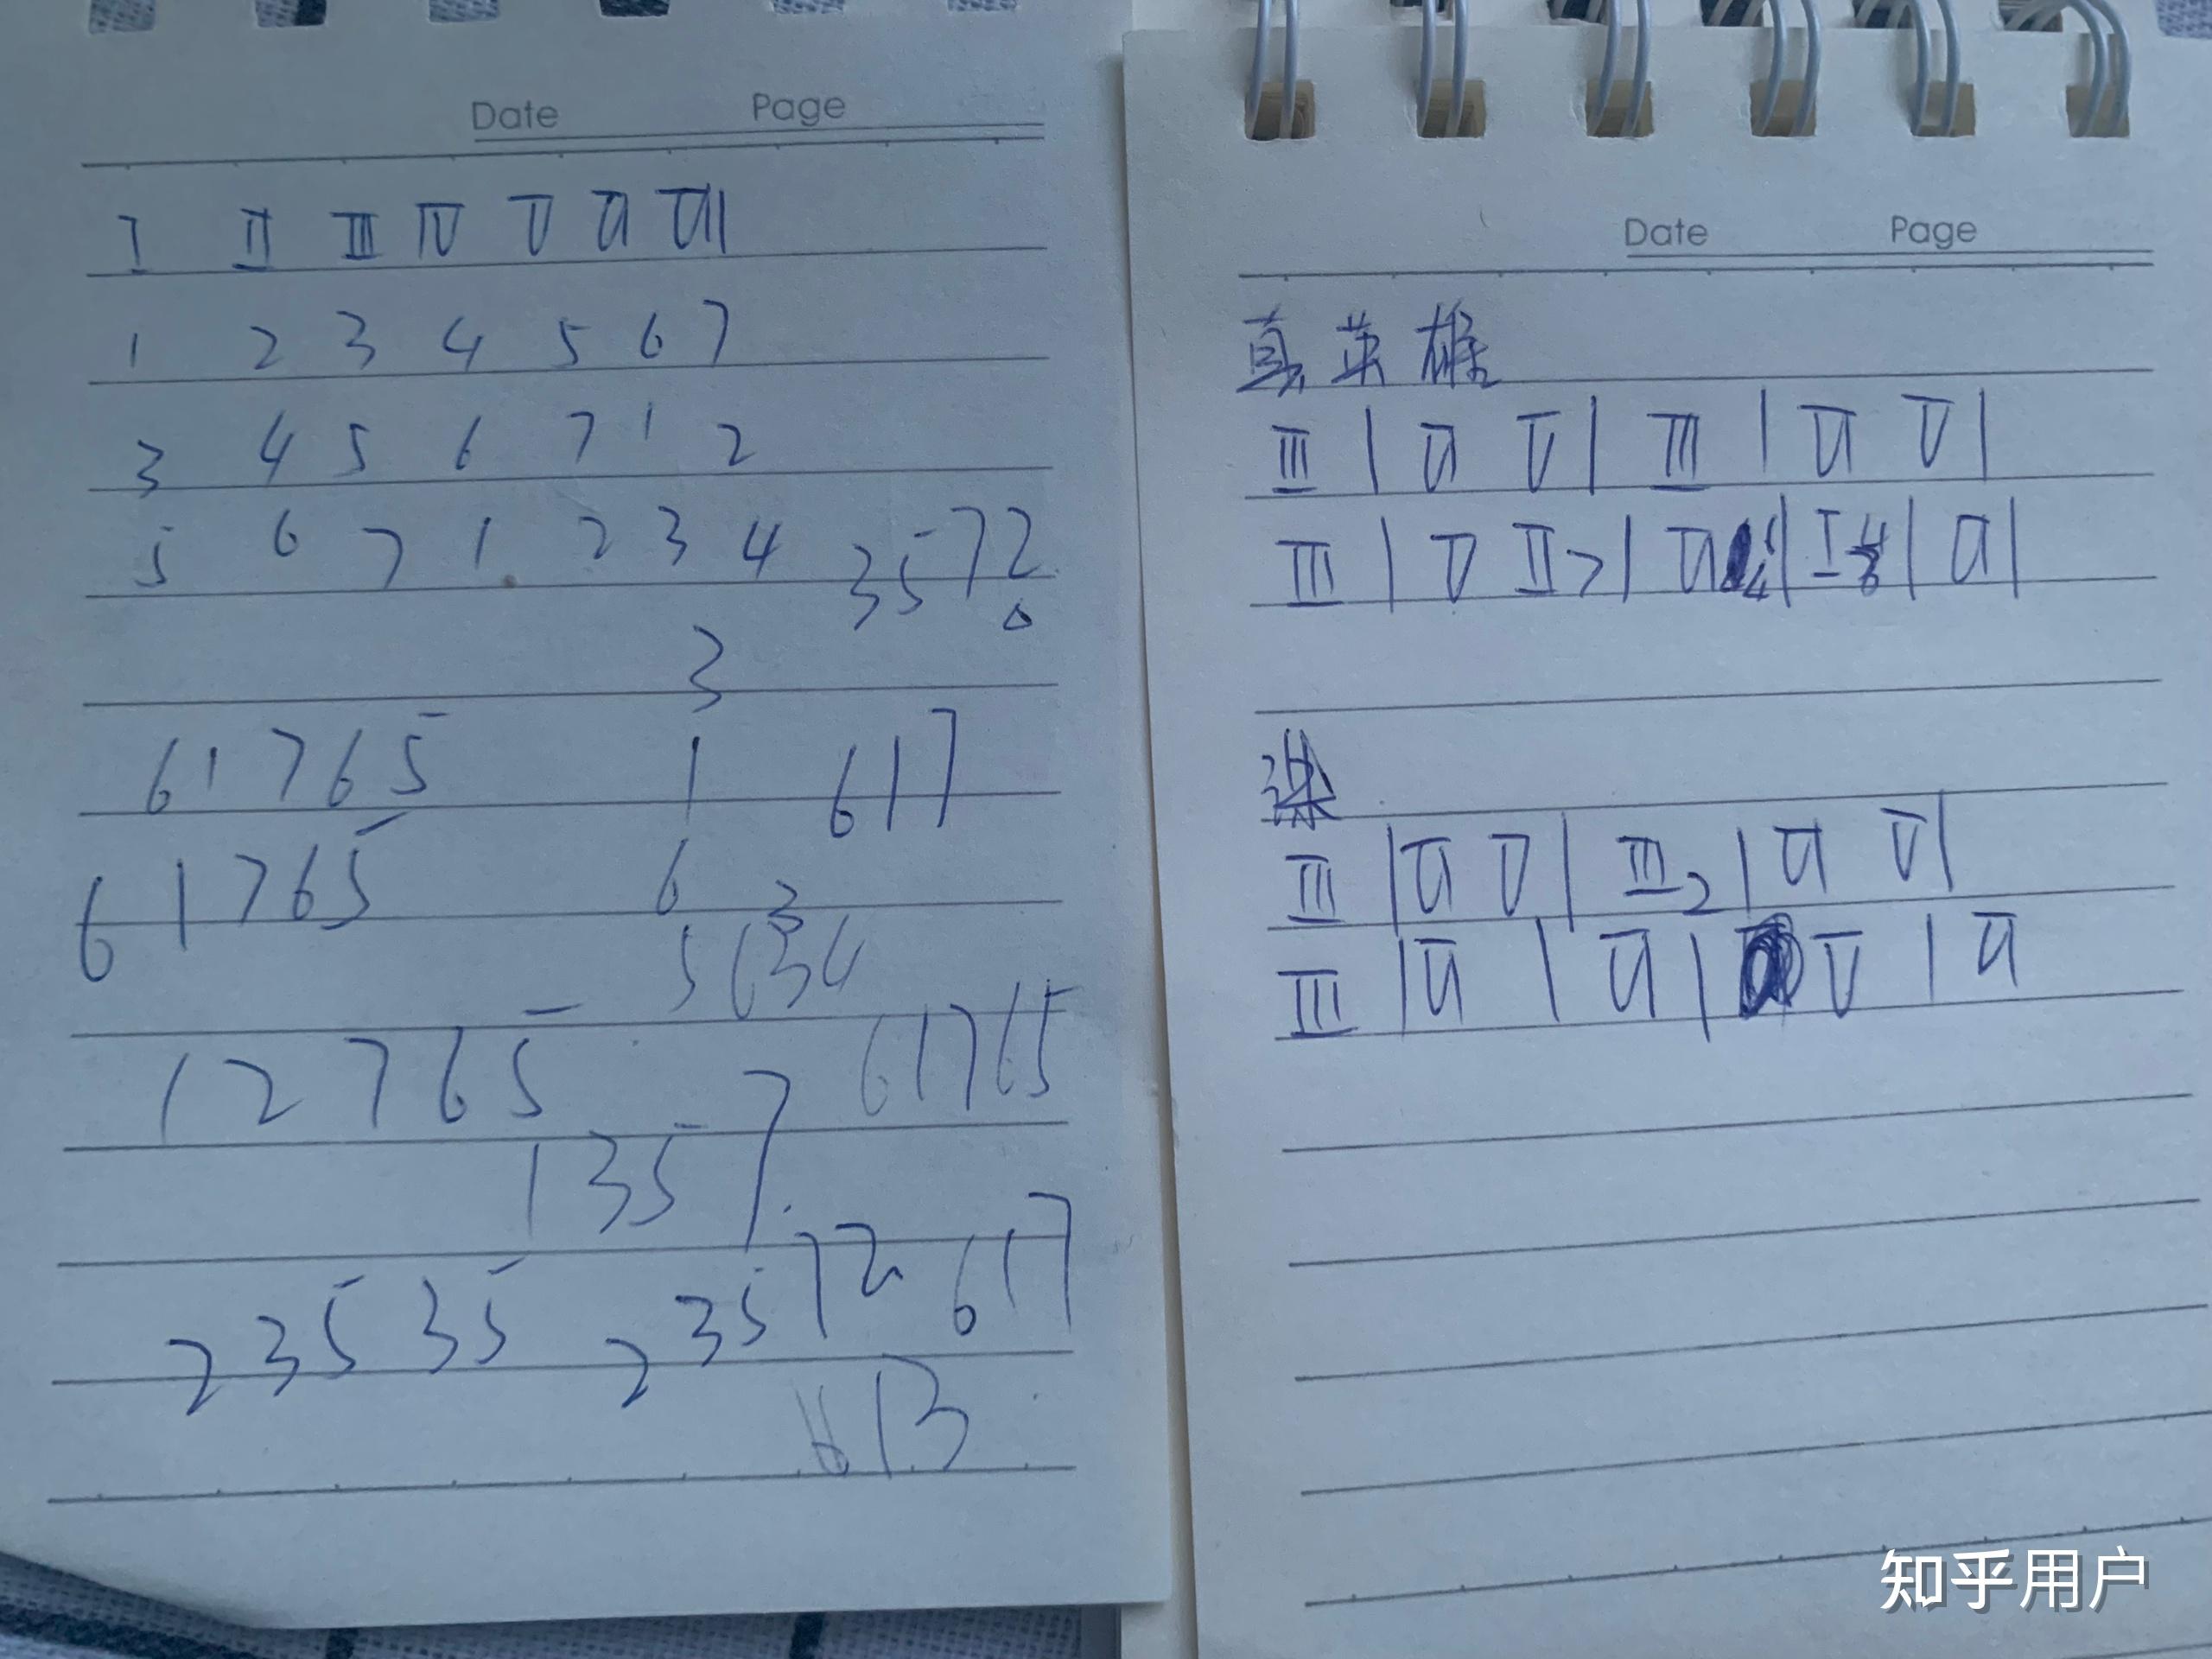 Date Page
I II III IV V VI VII
1 2 3 4 5 6 7
3 4 5 6 7 1 2
5 6 7 1 2 3 4 3 5 7 2
3
6 1 7 6 5 1 6 1 7
6 1 7 6 5 6
1 2 7 6 5 6 1 7 6 5
1 3 5 7
2 3 5 3 5 2 3 5 7 2 6 1 7
6 1 3
Date Page
真英雄
III | VI V | III | VI V |
III | V II7 | VI | I | VI |
染
III | VI V | III2 | VI V |
III | VI | VI | V | VI
知乎用户